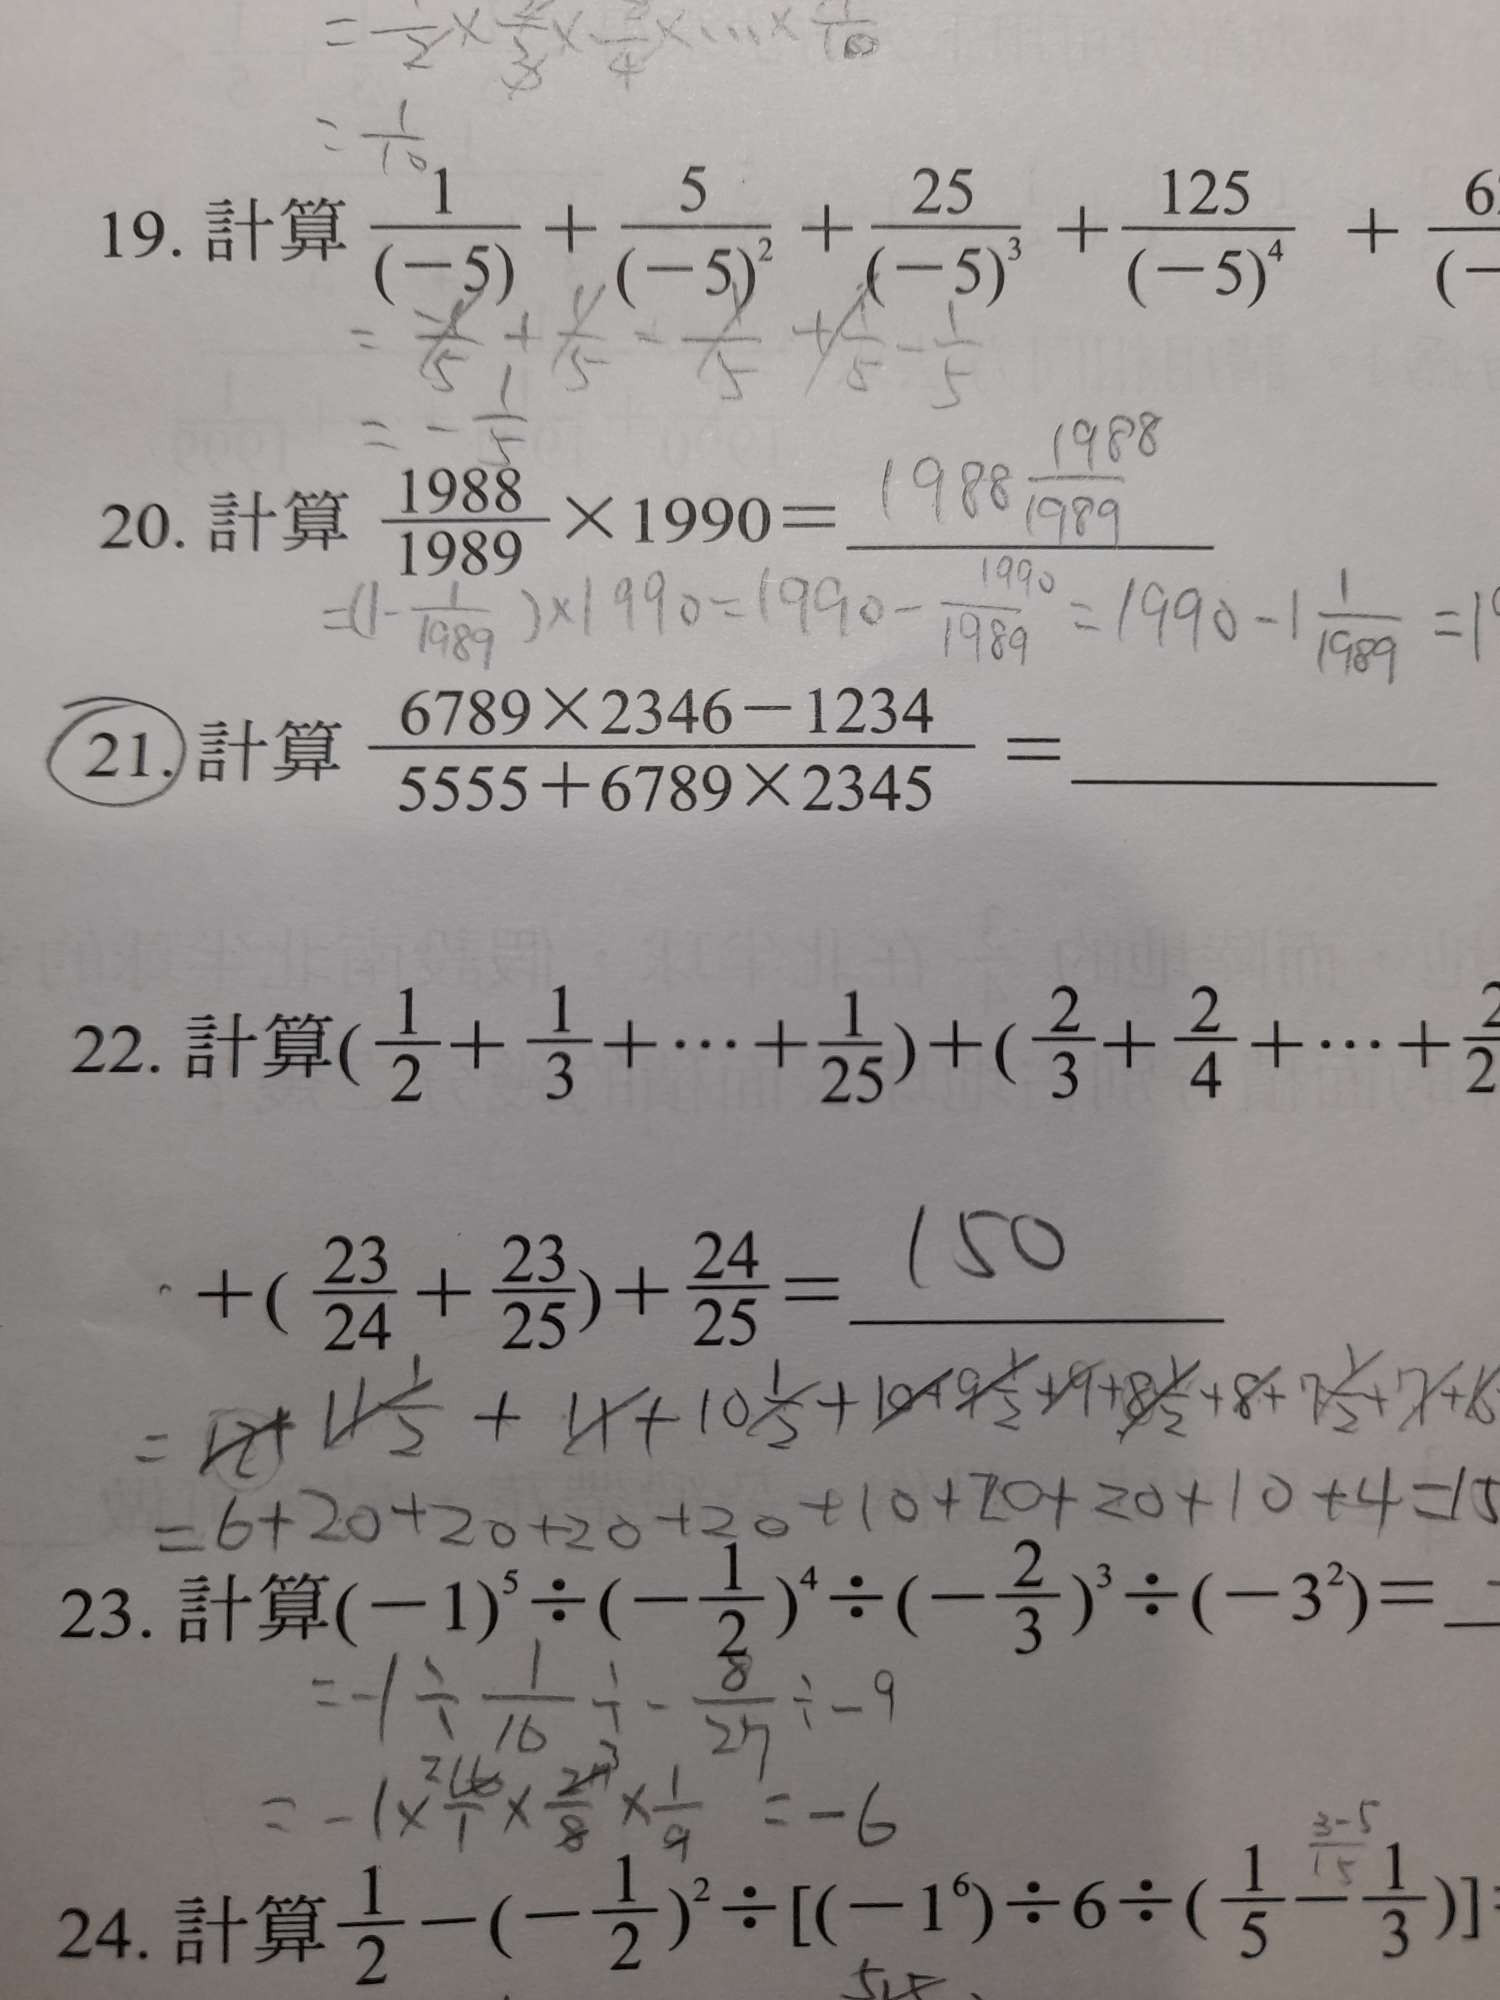 = 1/2 × 2/3 × 3/4 × ... × 9/10
= 1/10
19. 計算 1/(−5) + 5/(−5)² + 25/(−5)³ + 125/(−5)⁴ +
= -1/5 + 1/5 - 1/5 + 1/5 - 1/5
= - 1/5
20. 計算 1988/1989 × 1990 = 1988 1988/1989
= (1 - 1/1989) × 1990 = 1990 - 1990/1989 = 1990 - 1 1/1989 =
21. 計算 (6789×2346−1234)/(5555+6789×2345) =
22. 計算(1/2 + 1/3 + ⋯ + 1/25) + (2/3 + 2/4 + ⋯ +
+ (23/24 + 23/25) + 24/25 = 150
= 12 + 11 1/2 + 11 + 10 1/2 + 10 + 9 1/2 + 9 + 8 1/2 + 8 + 7 1/2 + 7 +
= 6 + 20 + 20 + 20 + 20 + 10 + 20 + 20 + 10 + 4 = 15
23. 計算(−1)⁵ ÷ (−1/2)⁴ ÷ (−2/3)³ ÷ (−3²) =
= -1 ÷ 1/16 ÷ - 8/27 ÷ -9
= -1 × 16/1 × 27/8 × 1/9 = -6
3-5/15
24. 計算 1/2 − (−1/2)² ÷ [(−1⁶) ÷ 6 ÷ (1/5 − 1/3)]